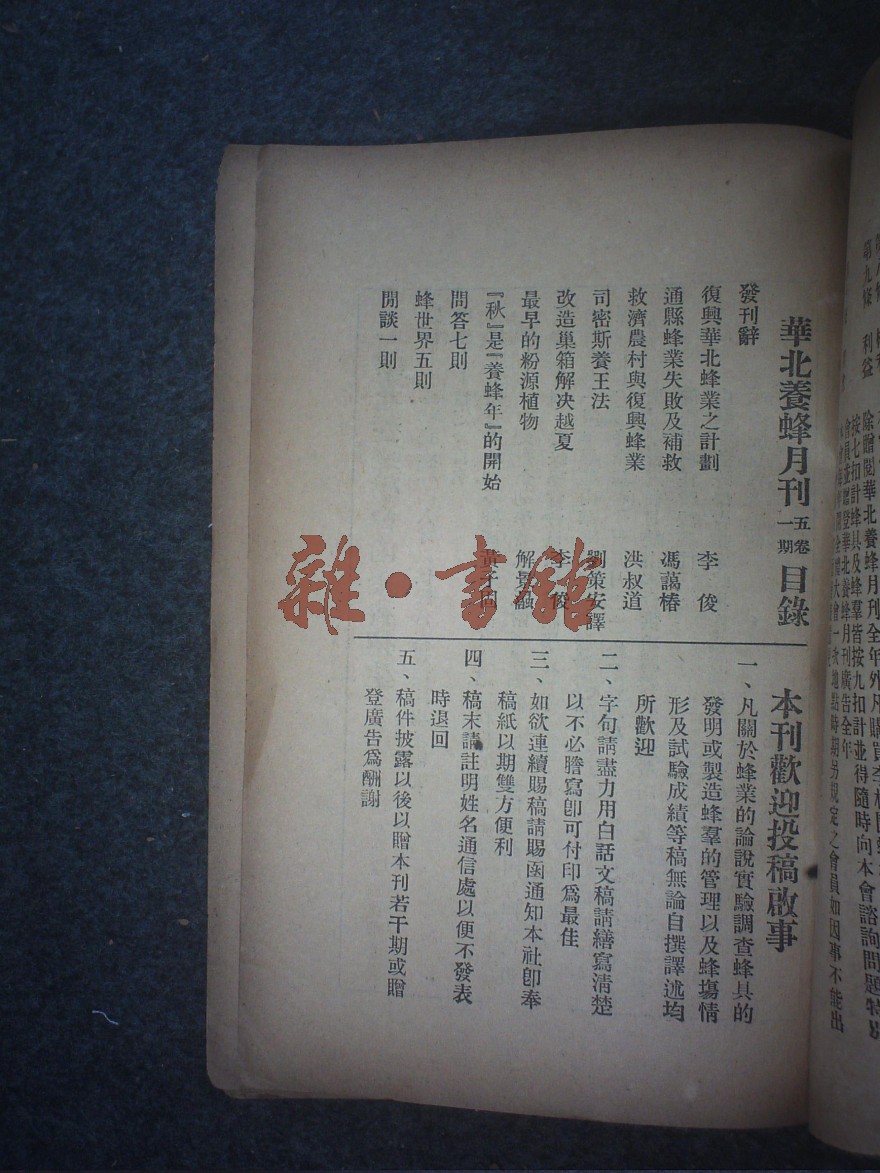 華北養蜂月刊 五卷一期 目錄
發刊辭
復興華北蜂業之計劃 李俊
通縣蜂業失敗及補救 馮藹椿
救濟農村與復興蜂業 洪叔道
司密斯養王法 劉策安譯
改造巢箱解决越夏 李俊
最早的粉源植物 解景融
『秋』是『養蜂年』的開始 黃子固
問答七則
蜂世界五則
閒談一則
本刊歡迎投稿啟事
一、凡關於蜂業的論說實驗調查蜂具的
發明或製造蜂羣的管理以及蜂塲情
形及試驗成績等稿無論自撰譯述均
所歡迎
二、字句請盡力用白話文稿請繕寫清楚
以不必謄寫卽可付印爲最佳
三、如欲連續賜稿請賜函通知本社卽奉
稿紙以期雙方便利
四、稿末請註明姓名通信處以便不發表
時退回
五、稿件披露以後以贈本刊若干期或贈
登廣告爲酬謝
第九條 利益 除贈閱華北養蜂月刊全年外凡購買李林園
按七扣計蜂具及蜂羣皆按九扣計並得隨時向本會諮詢問題特別
會員並贈登華北養蜂月刊廣告全年
大會一次地點時期另規定之會員如因事不能出
雜·書館